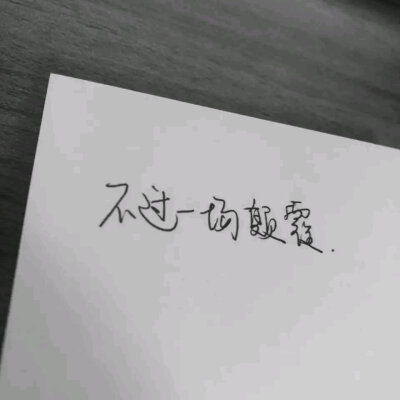 不过一场颠覆.